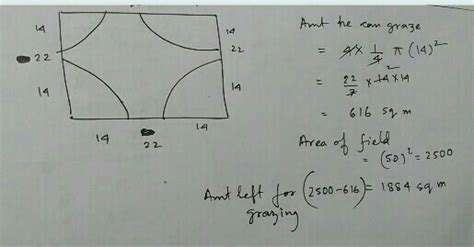 14 14
22 22
14 14
14 22 14
Amt he can graze
= 4 × 1/4 π (14)²
= 22/7 × 14² × 14
= 616 sq m
Area of field
= (50)² = 2500
Amt left for (2500-616) = 1884 sq m
grazing